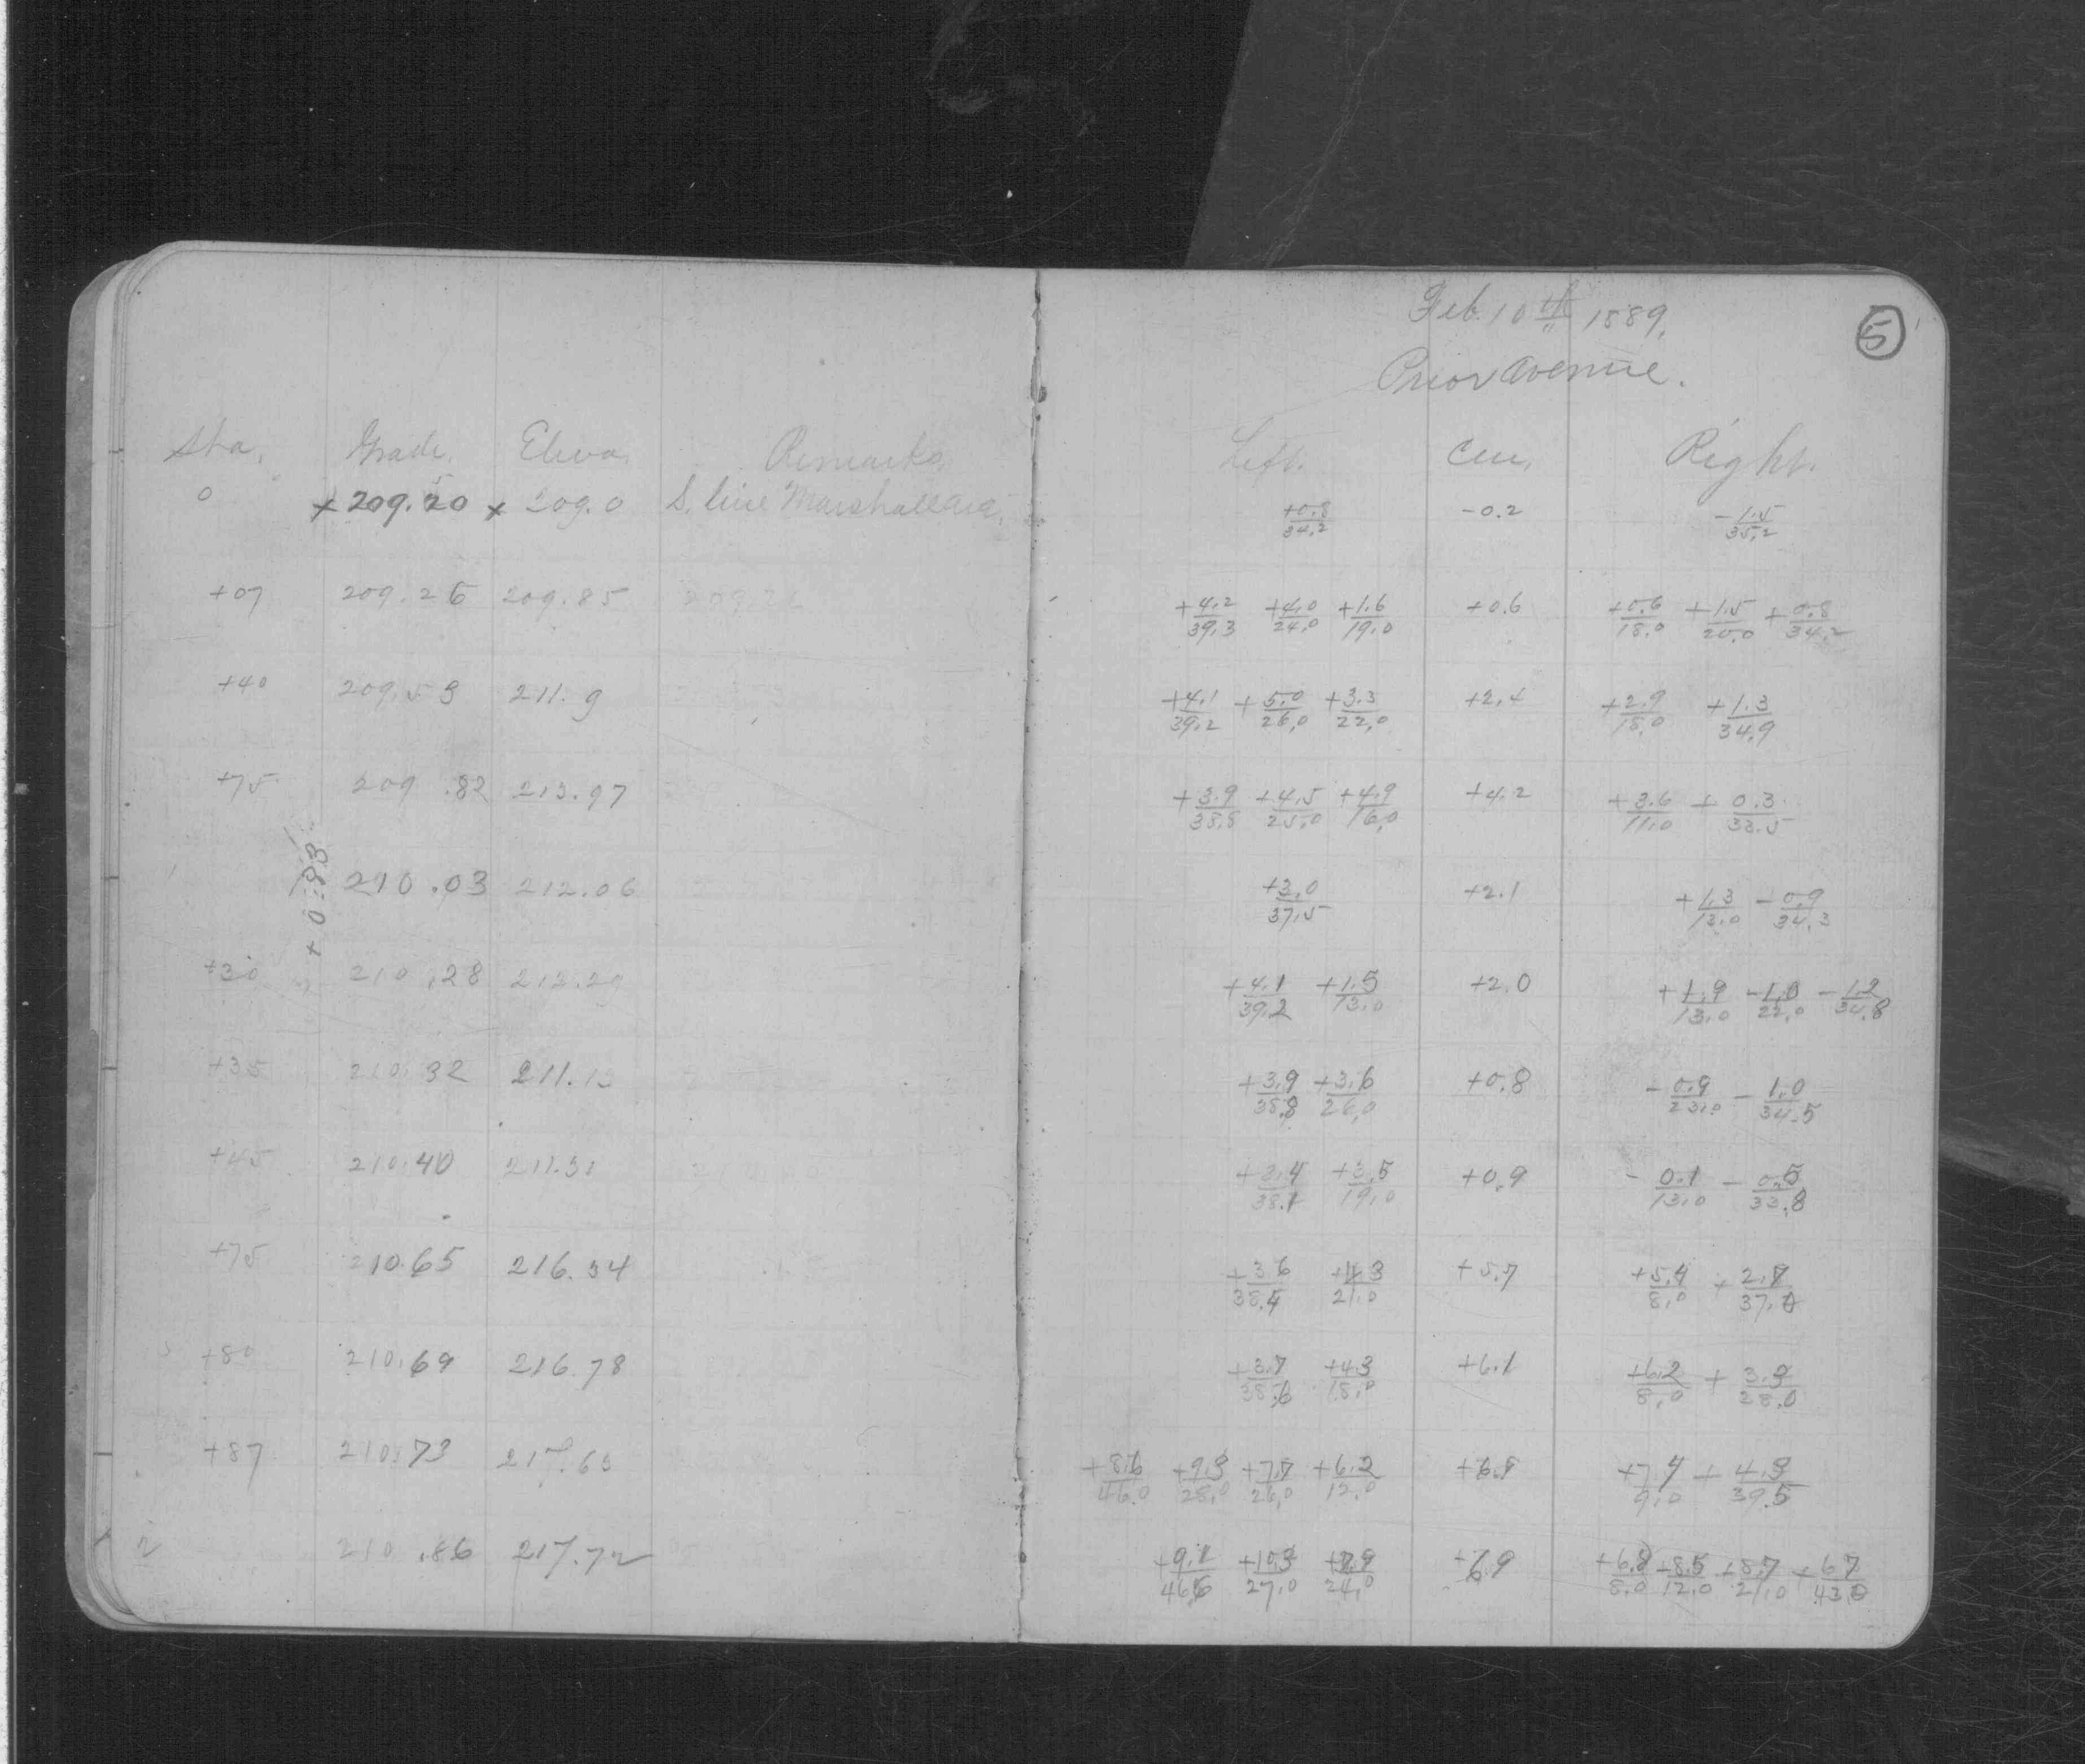 Feb. 10th 1889.
5
Prior Avenue.
Sta. Grade. Eleva. Remarks Left. Cen. Right.
0 x 209.20 x 209.0 S. line Marshall Ave. +0.8/34.2 -0.2 -1.5/35.2
+07 209.26 209.85 +4.2/39.3 +4.0/24.0 +1.6/19.0 +0.6 +0.6/18.0 +1.5/20.0 +0.8/34.2
+40 209.53 211.9 +4.1/39.2 +5.0/26.0 +3.3/22.0 +2.4 +2.9/18.0 +1.3/34.9
+75 209.82 213.97 +3.9/38.8 +4.5/25.0 +4.9/16.0 +4.2 +3.6/11.0 +0.3/33.5
1 +0.83 210.03 212.06 +3.0/37.5 +2.1 +1.3/13.0 -0.9/34.3
+30 210.28 212.29 +4.1/39.2 +1.5/13.0 +2.0 +1.9/13.0 -1.0/22.0 -1.2/34.8
+35 210.32 211.13 +3.9/38.8 +3.6/26.0 +0.8 -0.9/23.0 -1.0/34.5
+45 210.40 211.31 +3.4/38.1 +3.5/19.0 +0.9 -0.1/13.0 -0.5/33.8
+75 210.65 216.34 +3.6/38.4 21.0 +5.7 +5.4/8.0 +2.7/37.0
+80 210.69 216.78 +3.7/38.6 +4.3/18.0 +6.1 +6.2/8.0 +3.9/38.0
+87 210.73 217.63 +8.6/46.0 +9.3/28.0 +7.7/26.0 +6.2/12.0 +6.9 +7.4/9.0 +4.3/39.5
2 210.86 217.72 +9.1/46.6 +10.3/27.0 +7.9/24.0 +6.9 +6.8/8.0 +8.5/12.0 +8.7/21.0 +6.7/43.0